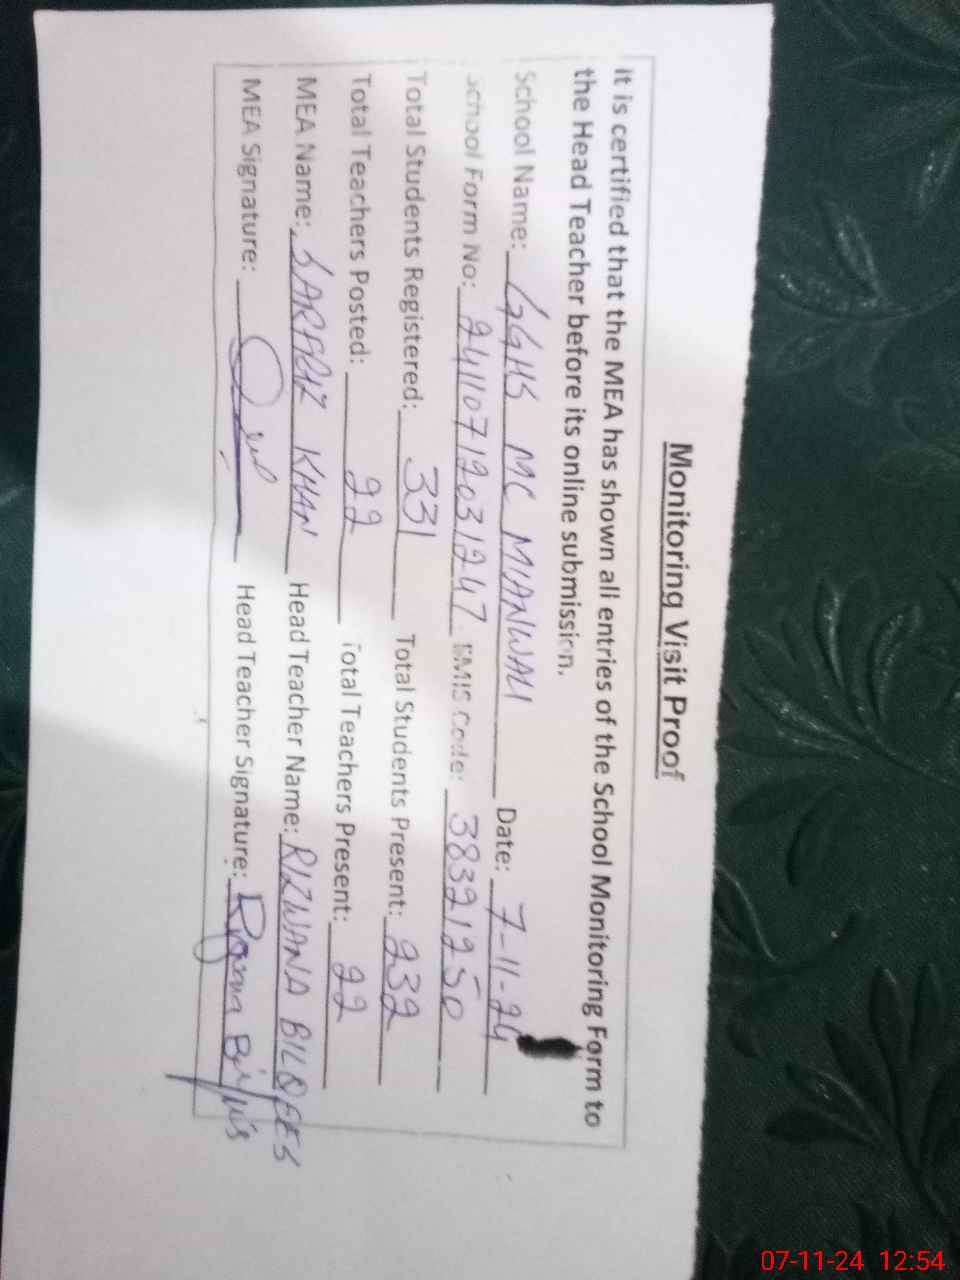 Monitoring Visit Proof
It is certified that the MEA has shown all entries of the School Monitoring Form to
the Head Teacher before its online submission.
School Name: GGHS MC MIANWALI Date: 7-11-24
School Form No: 24110712031247 EMIS Code: 38321250
Total Students Registered: 331 Total Students Present: 232
Total Teachers Posted: 22 Total Teachers Present: 22
MEA Name: SARFRAZ KHAN Head Teacher Name: RIZWANA BILQEES
MEA Signature: Head Teacher Signature:
07-11-24 12:54